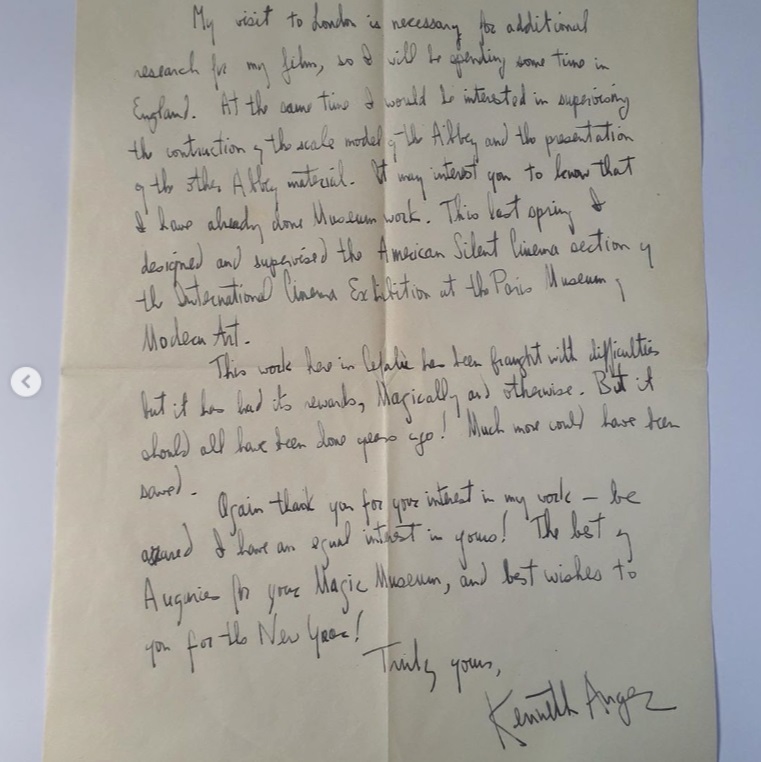 My visit to London is necessary for additional
research for my film, so I will be spending some time in
England. At the same time I would be interested in supervising
the contruction of the scale model of the Abbey and the presentation
of the other Abbey material. It may interest you to know that
I have already done Museum work. This last spring I
designed and supervised the American Silent Cinema section of
the International Cinema Exhibition at the Paris Museum of
Modern Art.
This work here in Cefalù has been fraught with difficulties
but it has had its rewards, Magically and otherwise. But it
should all have been done years ago! Much more could have been
saved.
Again thank you for your interest in my work – be
assured I have an equal interest in yours! The best of
Auguries for your Magic Museum, and best wishes to
you for the New Year!
Truly yours,
Kenneth Anger